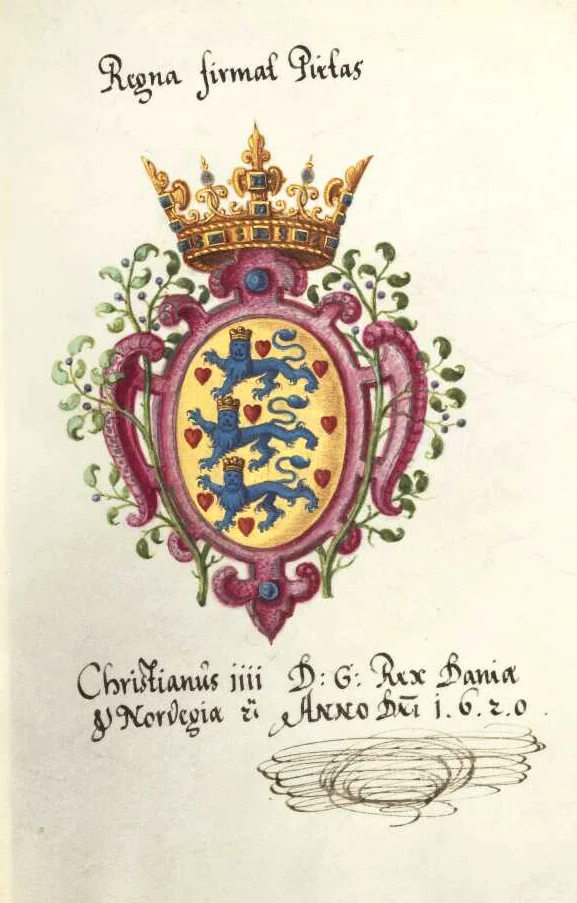 Regna firmat Pietas
Christianus iiii D: G: Rex Daniæ
Norvegiæ Anno Dñi 1.6.2.0.